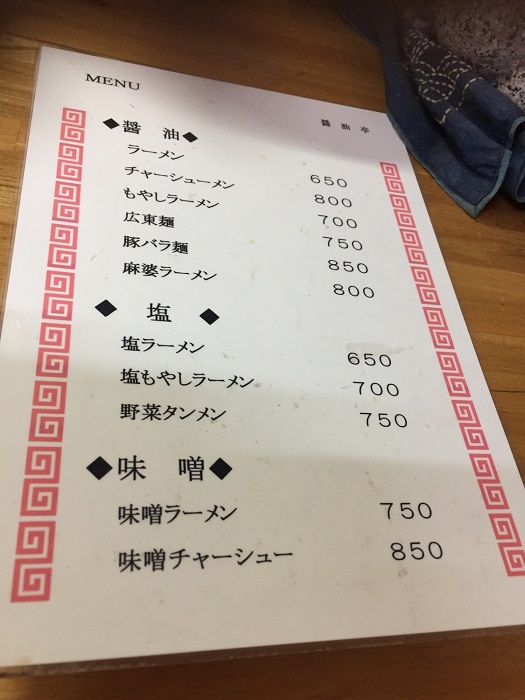 MENU
醤油亭
◆醤 油◆
ラーメン 650
チャーシューメン 800
もやしラーメン 700
広東麺 750
豚バラ麺 850
麻婆ラーメン 800
◆ 塩 ◆
塩ラーメン 650
塩もやしラーメン 700
野菜タンメン 750
◆味 噌◆
味噌ラーメン 750
味噌チャーシュー 850